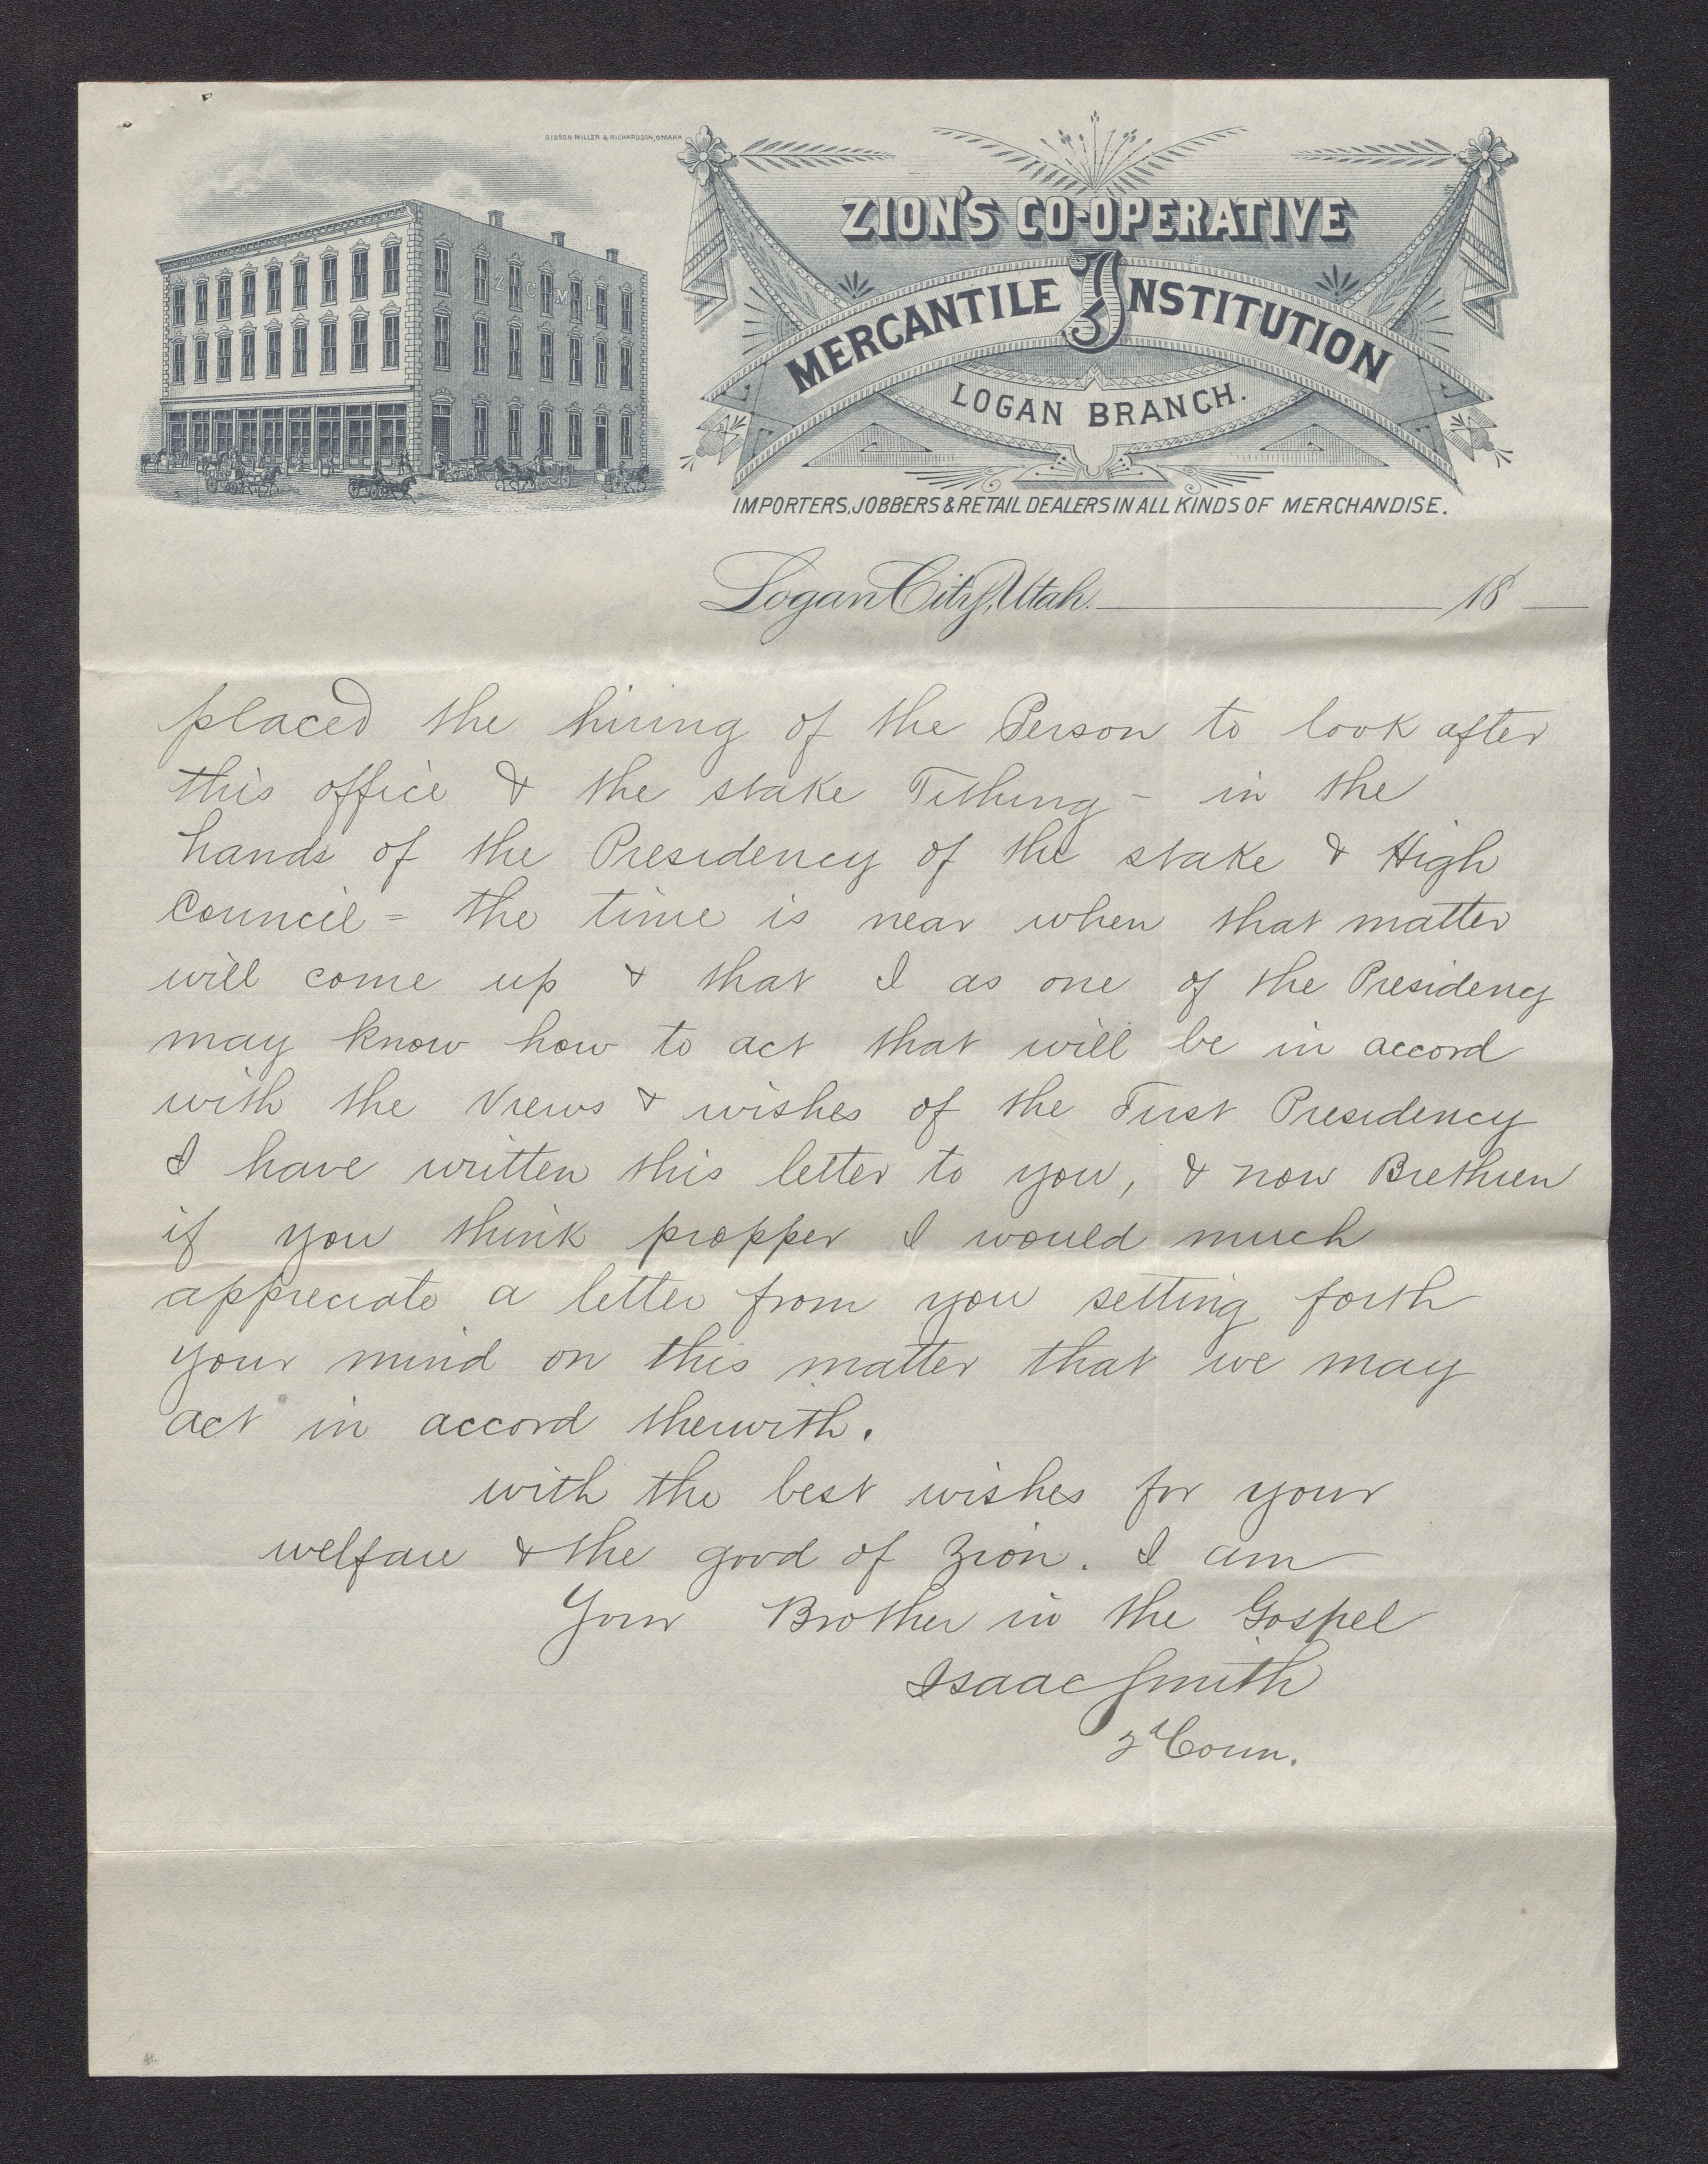 GIBSON MILLER & RICHARDSON, OMAHA
Z C M I
ZION'S CO-OPERATIVE
MERCANTILE INSTITUTION
LOGAN BRANCH.
IMPORTERS, JOBBERS & RETAIL DEALERS IN ALL KINDS OF MERCHANDISE.
Logan City, Utah. 18
placed the hiring of the Person to look after
this office & the stake Tithing - in the
hands of the Presidency of the stake & High
Council = the time is near when that matter
will come up & that I as one of the Presidency
may know how to act that will be in accord
with the Views & wishes of the First Presidency
I have written this letter to you, & now Brethren
if you think propper I would much
appreciate a letter from you setting forth
your mind on this matter that we may
act in accord therwith.
with the best wishes for your
welfare & the good of Zion. I am
Your Brother in the Gospel
Isaac Smith
2d Coun.